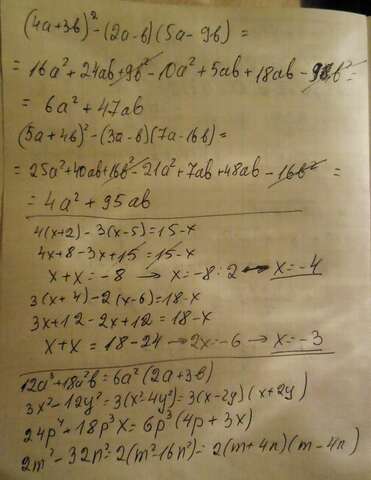 (4a+3в)²-(2a-в)(5a-9в)=
=16a²+24aв+9в²-10a²+5aв+18aв-9в²=
=6a²+47aв
(5a+4в)²-(3a-в)(7a-16в)=
=25a²+40aв+16в²-21a²+7aв+48aв-16в²=
=4a²+95aв
4(x+2)-3(x-5)=15-x
4x+8-3x+15=15-x
x+x=-8 → x=-8:2 → x=-4
3(x+4)-2(x-6)=18-x
3x+12-2x+12=18-x
x+x=18-24 → 2x=-6 → x=-3
12a³+18a²в=6a²(2a+3в)
3x²-12y²=3(x²-4y²)=3(x-2y)(x+2y)
24p⁴+18p³x=6p³(4p+3x)
2m²-32n²=2(m²-16n²)=2(m+4n)(m-4n)